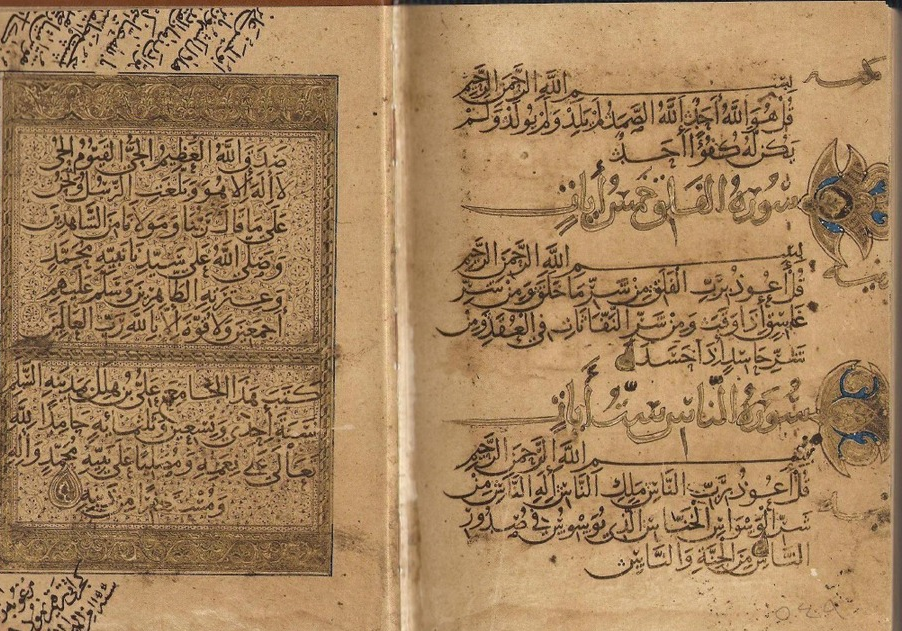 بسم الله الرحمن الرحيم
قل هو الله أحد الله الصمد لم يلد ولم يولد ولم
يكن له كفؤا أحد
سورة الفلق خمس أيات
بسم الله الرحمن الرحيم
قل أعوذ برب الفلق من شر ما خلق ومن شر
غاسق إذا وقب ومن شر النفاثات في العقد ومن
شر حاسد إذا حسد
سورة الناس ست أيات
بسم الله الرحمن الرحيم
قل أعوذ برب الناس ملك الناس إله الناس من
شر الوسواس الخناس الذي يوسوس في صدور
الناس من الجنة والناس
صدق الله العظيم الحي القيوم الحي
لا اله الا هو وبلغت الرسل ونحن
على ما قال ربنا ومولانا من الشاهدين
وصلى الله على سيدنا نبيه محمد
وعترته الطاهرين وسلم عليهم
أجمعين ولا قوة الا بالله رب العالمين
كتب هذا الجامع علي بن هلال بمدينة السلام
سنة أحدى وتسعين وثلثمائة حامدا لله
تعالى على نعمه ومصليا على نبيه محمد وآله
ومستغفرا من ذنبه